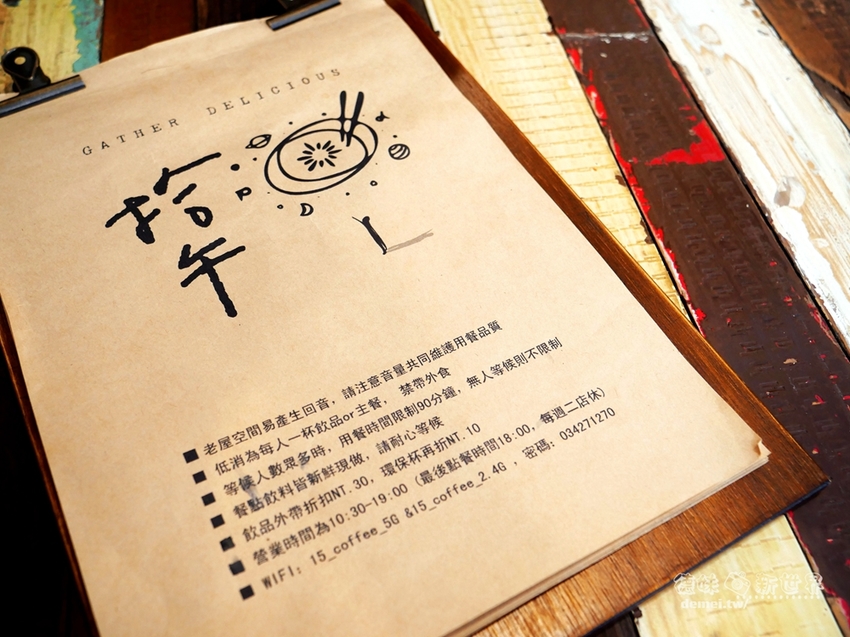 GATHER DELICIOUS
拾
午
■ 老屋空間易產生回音，請注意音量共同維護用餐品質
■ 低消為每人一杯飲品or主餐， 禁帶外食
■ 等候人數眾多時，用餐時間限制90分鐘，無人等候則不限制
■ 餐點飲料皆新鮮現做，請耐心等候
■ 飲品外帶折扣NT.30，環保杯再折NT.10
■ 營業時間為10:30-19:00（最後點餐時間18:00，每週二店休）
■ WIFI：15_coffee_5G &15_coffee_2.4G ，密碼：034271270
新世界
demei.tw/